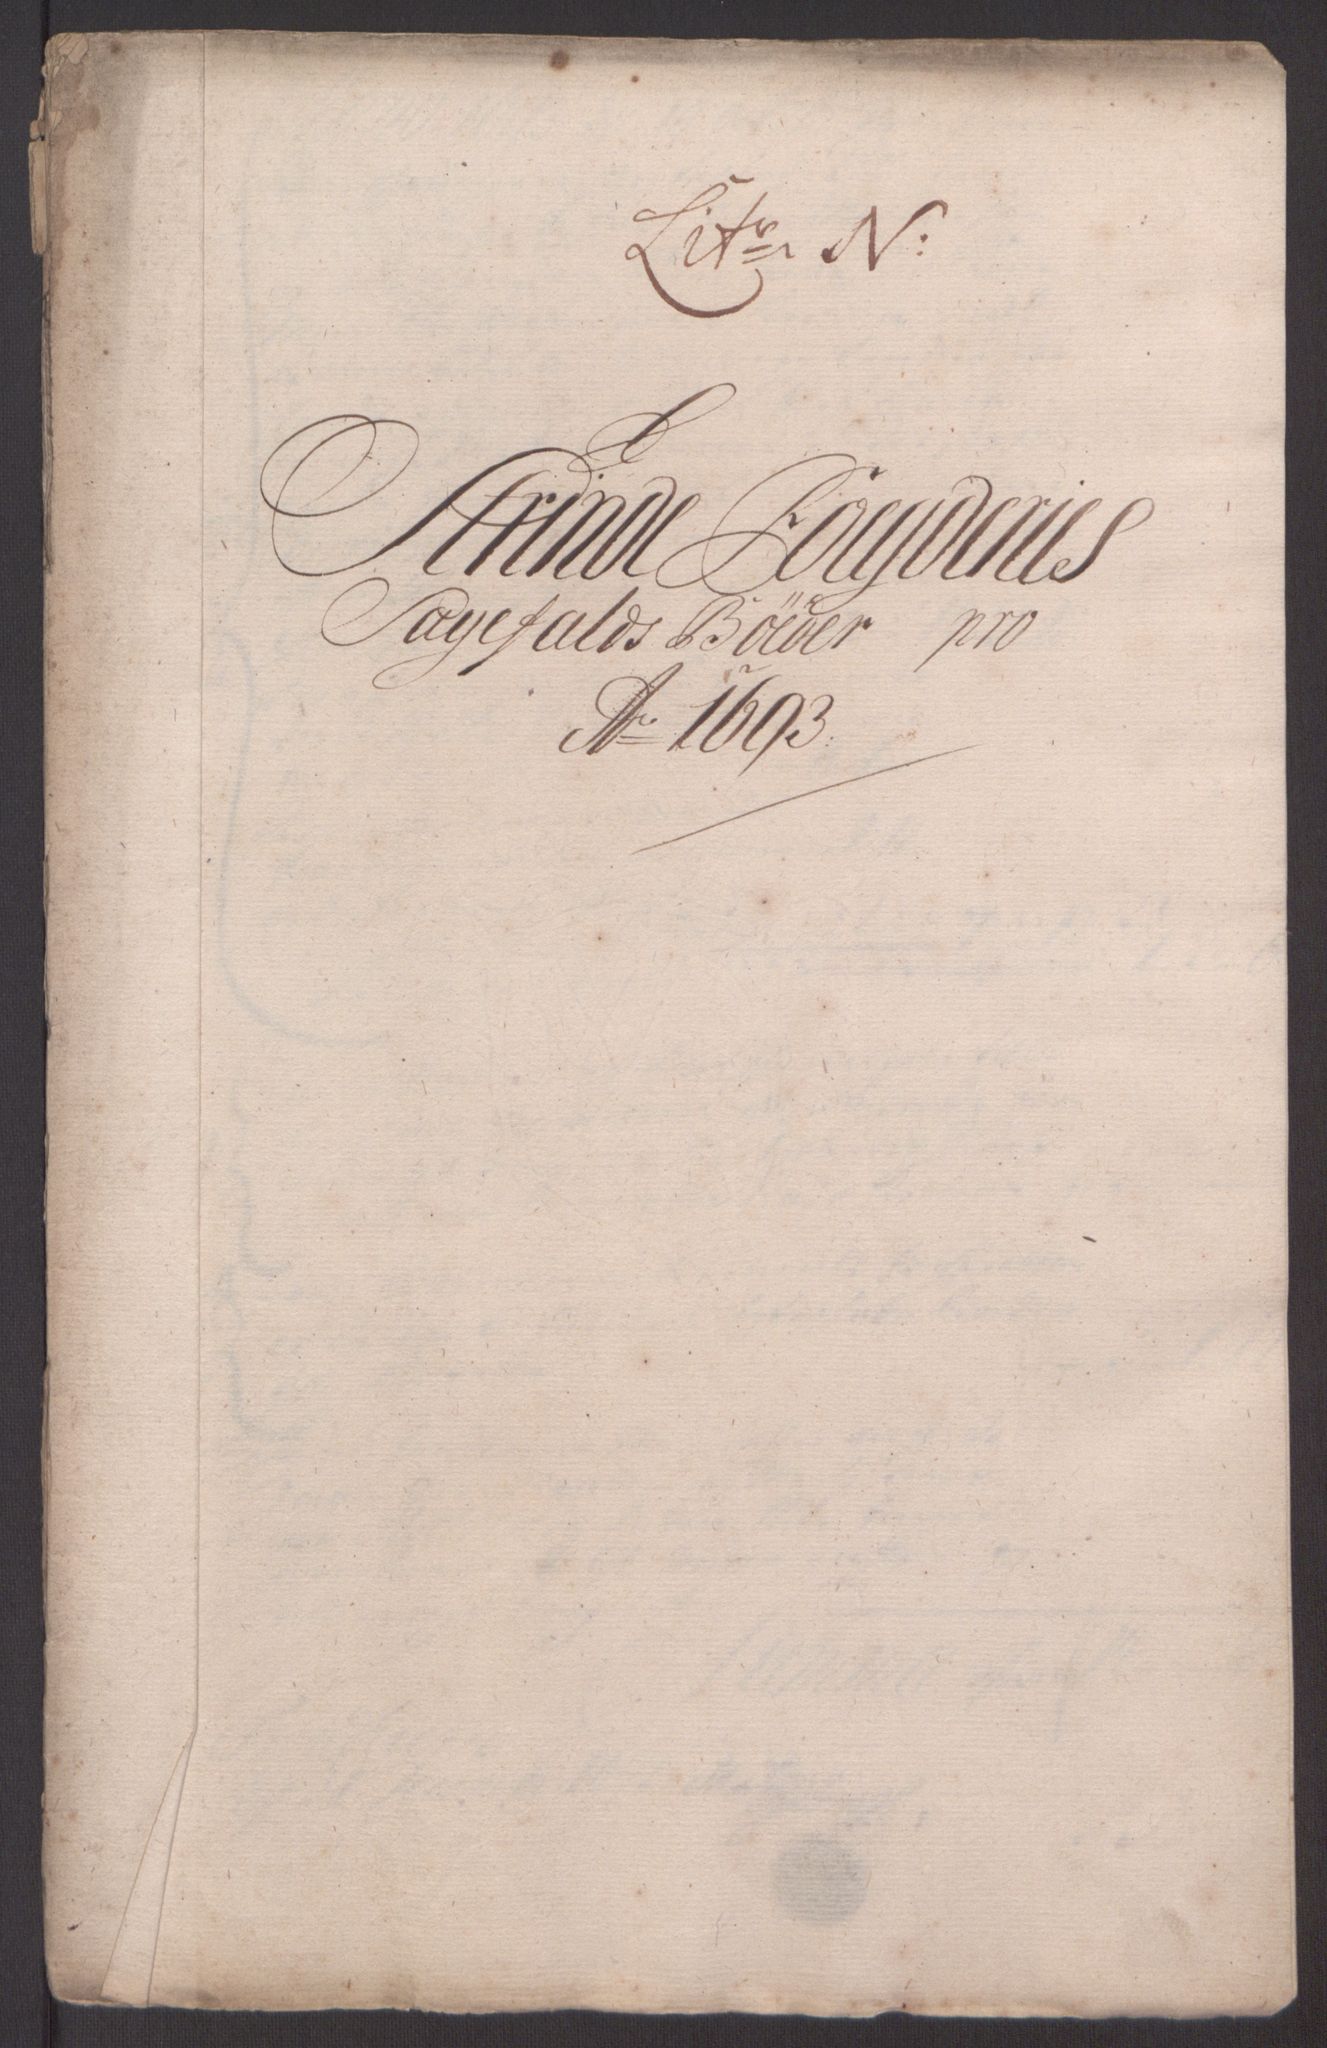 Litr N:
Strinde Fogderies
Sagefalds Bøder pro
Ao 1693.